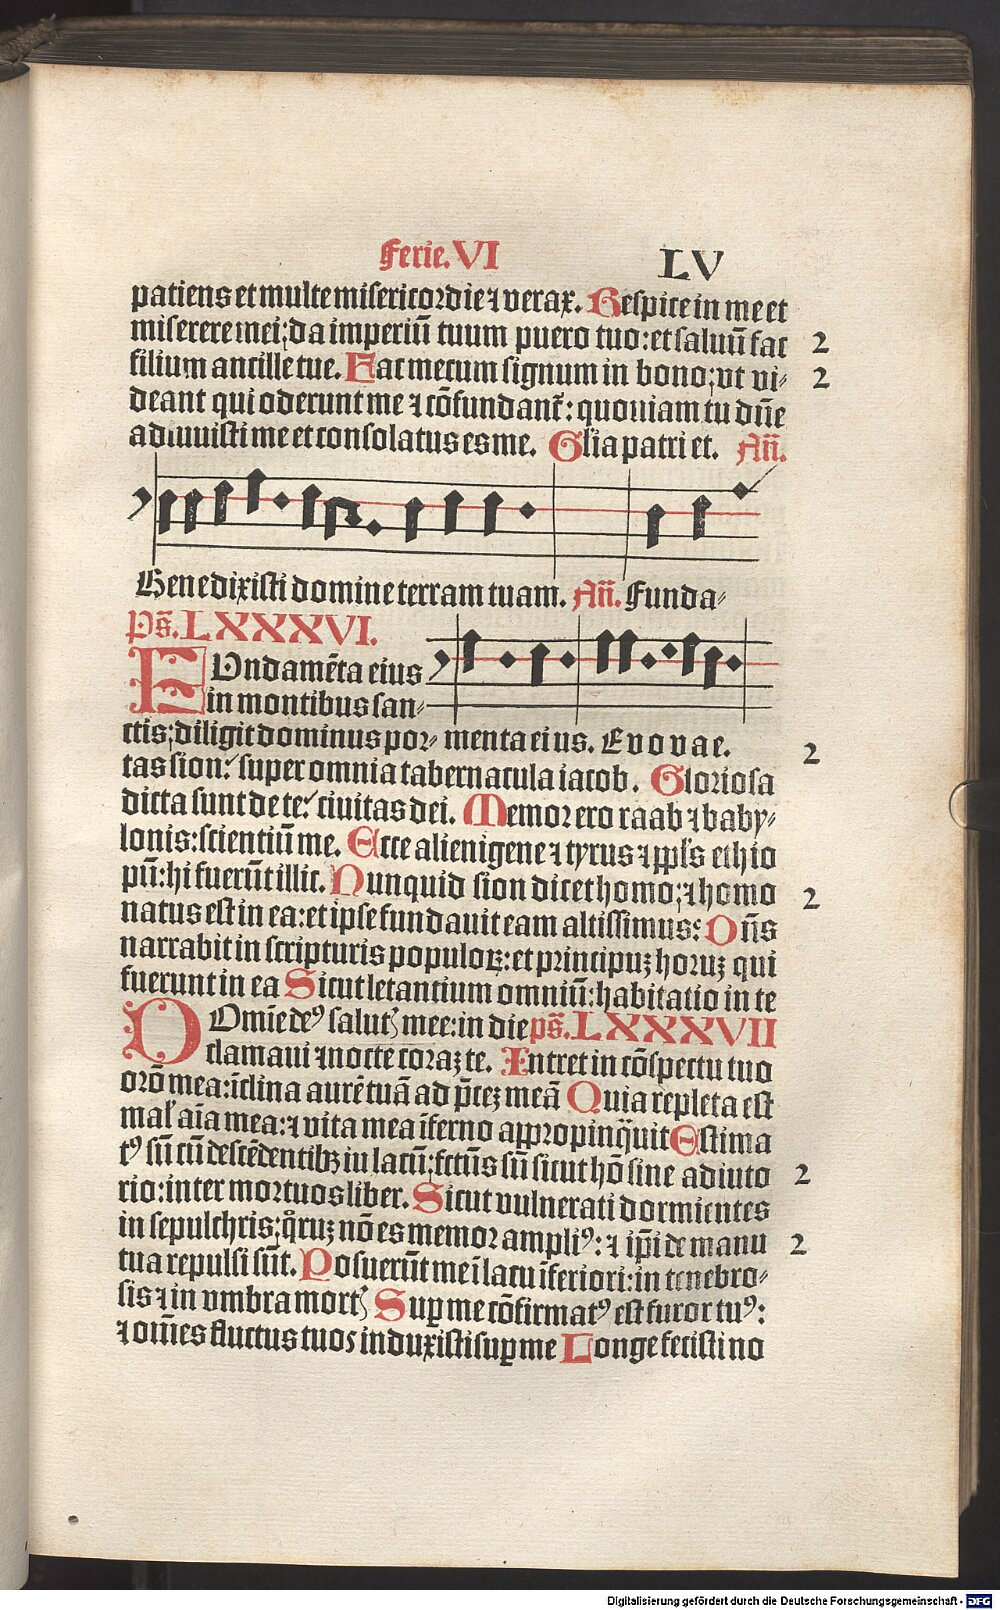 Ferie. VI LV
patiens et multe misericordie ⁊ verax. Respice in me et
miserere mei; da imperiū tuum puero tuo: et saluū fac 2
filium ancille tue. Fac mecum signum in bono; vt vi- 2
deant qui oderunt me ⁊ cōfundant᷑: quoniam tu dn̄e
adiuuisti me et consolatus es me. Gl̄ia patri et. An̄.
Benedixisti domine terram tuam. An̄. Funda-
Ps̄. LXXXVI.
FVndamēta eius
in montibus san-
ctis; diligit dominus por- menta eius. Evovae. 2
tas sion: super omnia tabernacula iacob. Gloriosa
dicta sunt de te: ciuitas dei. Memor ero raab ⁊ baby-
lonis: scientiū me. Ecce alienigene ⁊ tyrus ⁊ ppl̄s ethio
pū: hi fuerūt illic. Nunquid sion dicet homo; ⁊ homo 2
natus est in ea: et ipse fundauit eam altissimus: Dn̄s
narrabit in scripturis populoꝝ: et principuꝫ horuꝫ qui
fuerunt in ea Sicut letantium omniū: habitatio in te
DOmīe deꝰ salutꝭ mee: in die ps̄. LXXXVII
clamaui ⁊ nocte coraꝫ te. Intret in cōspectu tuo
orō mea: īclina aurē tuā ad p̄ceꝫ meā Quia repleta est
mal᷑ aīa mea: ⁊ vita mea īferno appropinq̄uit Estima
tꝰ sū cū descēdentibꝫ in lacū; fctūs sū sicut hō sine adiuto 2
rio: inter mortuos liber. Sicut vulnerati dormientes
in sepulchris; qͦruꝫ nō es memor ampliꝰ: ⁊ ip̄i de manu 2
tua repulsi sūt. Posuerūt me ī lacu īferiori: in tenebro-
sis ⁊ in vmbra mortꝭ Suꝑ me cōfirmatꝰ est furor tuꝰ:
⁊ om̄es fluctus tuos induxisti suꝑ me Longe fecisti no
Digitalisierung gefördert durch die Deutsche Forschungsgemeinschaft - DFG